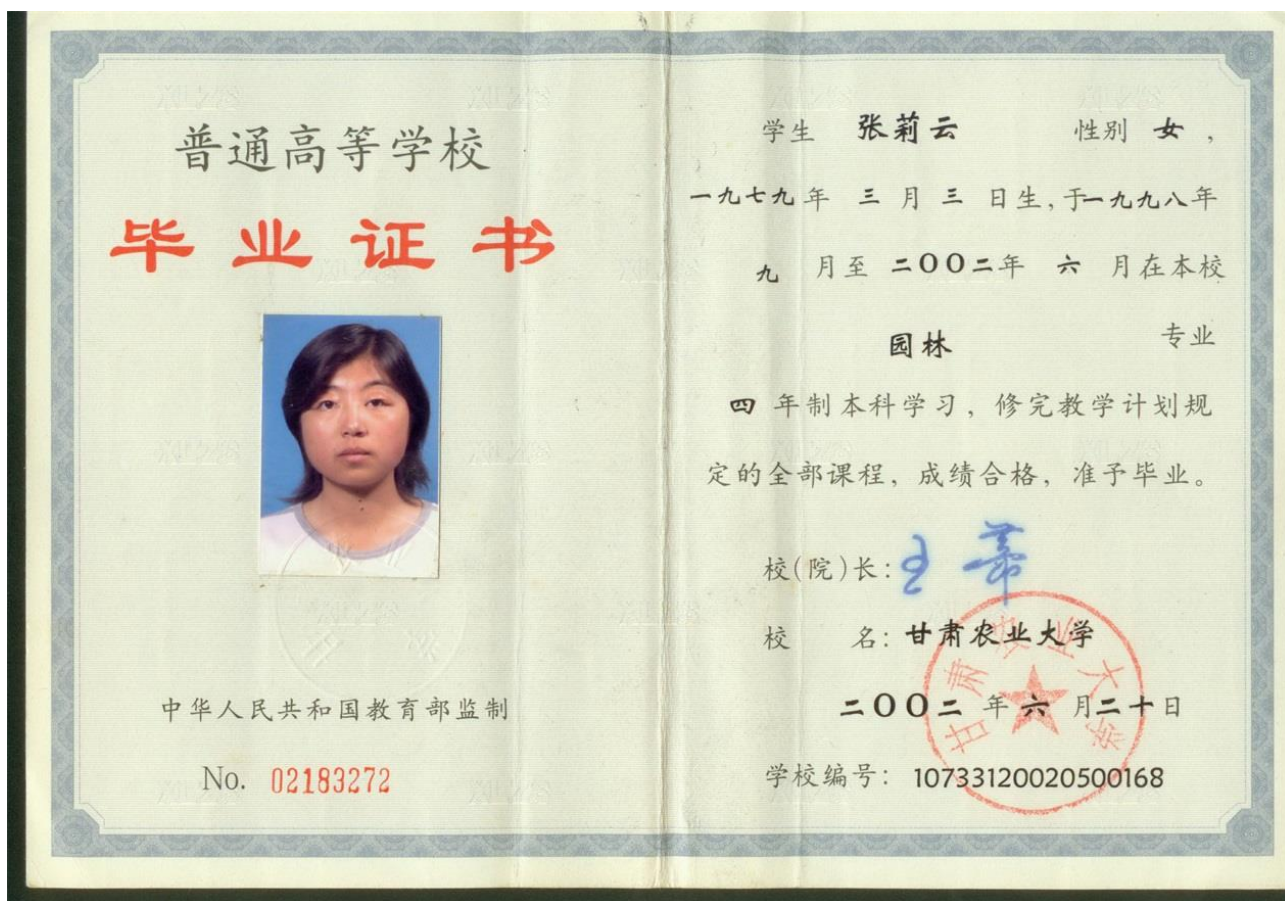 普通高等学校
毕业证书
中华人民共和国教育部监制
No. 02183272
学生 张莉云 性别 女，
一九七九年 三 月 三 日生，于一九九八年
九 月至 二〇〇二年 六 月在本校
园林 专业
四 年制本科学习，修完教学计划规
定的全部课程，成绩合格，准予毕业。
校(院)长：王蒂
校 名：甘肃农业大学
二〇〇二 年 六 月二十日
学校编号：107331200205000168
甘肃农业大学